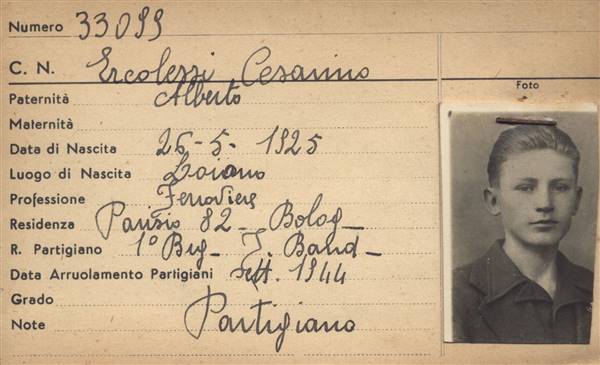 Numero 33099
C. N. Ercolessi Cesarino
Foto
Paternità Alberto
Maternità
Data di Nascita 26-5- 1925
Luogo di Nascita Loiano
Professione Ferroviere
Residenza Parisio 82 - Bolog-
R. Partigiano 1º Brg- I. Band-
Data Arruolamento Partigiani Sett. 1944
Grado
Note Partigiano